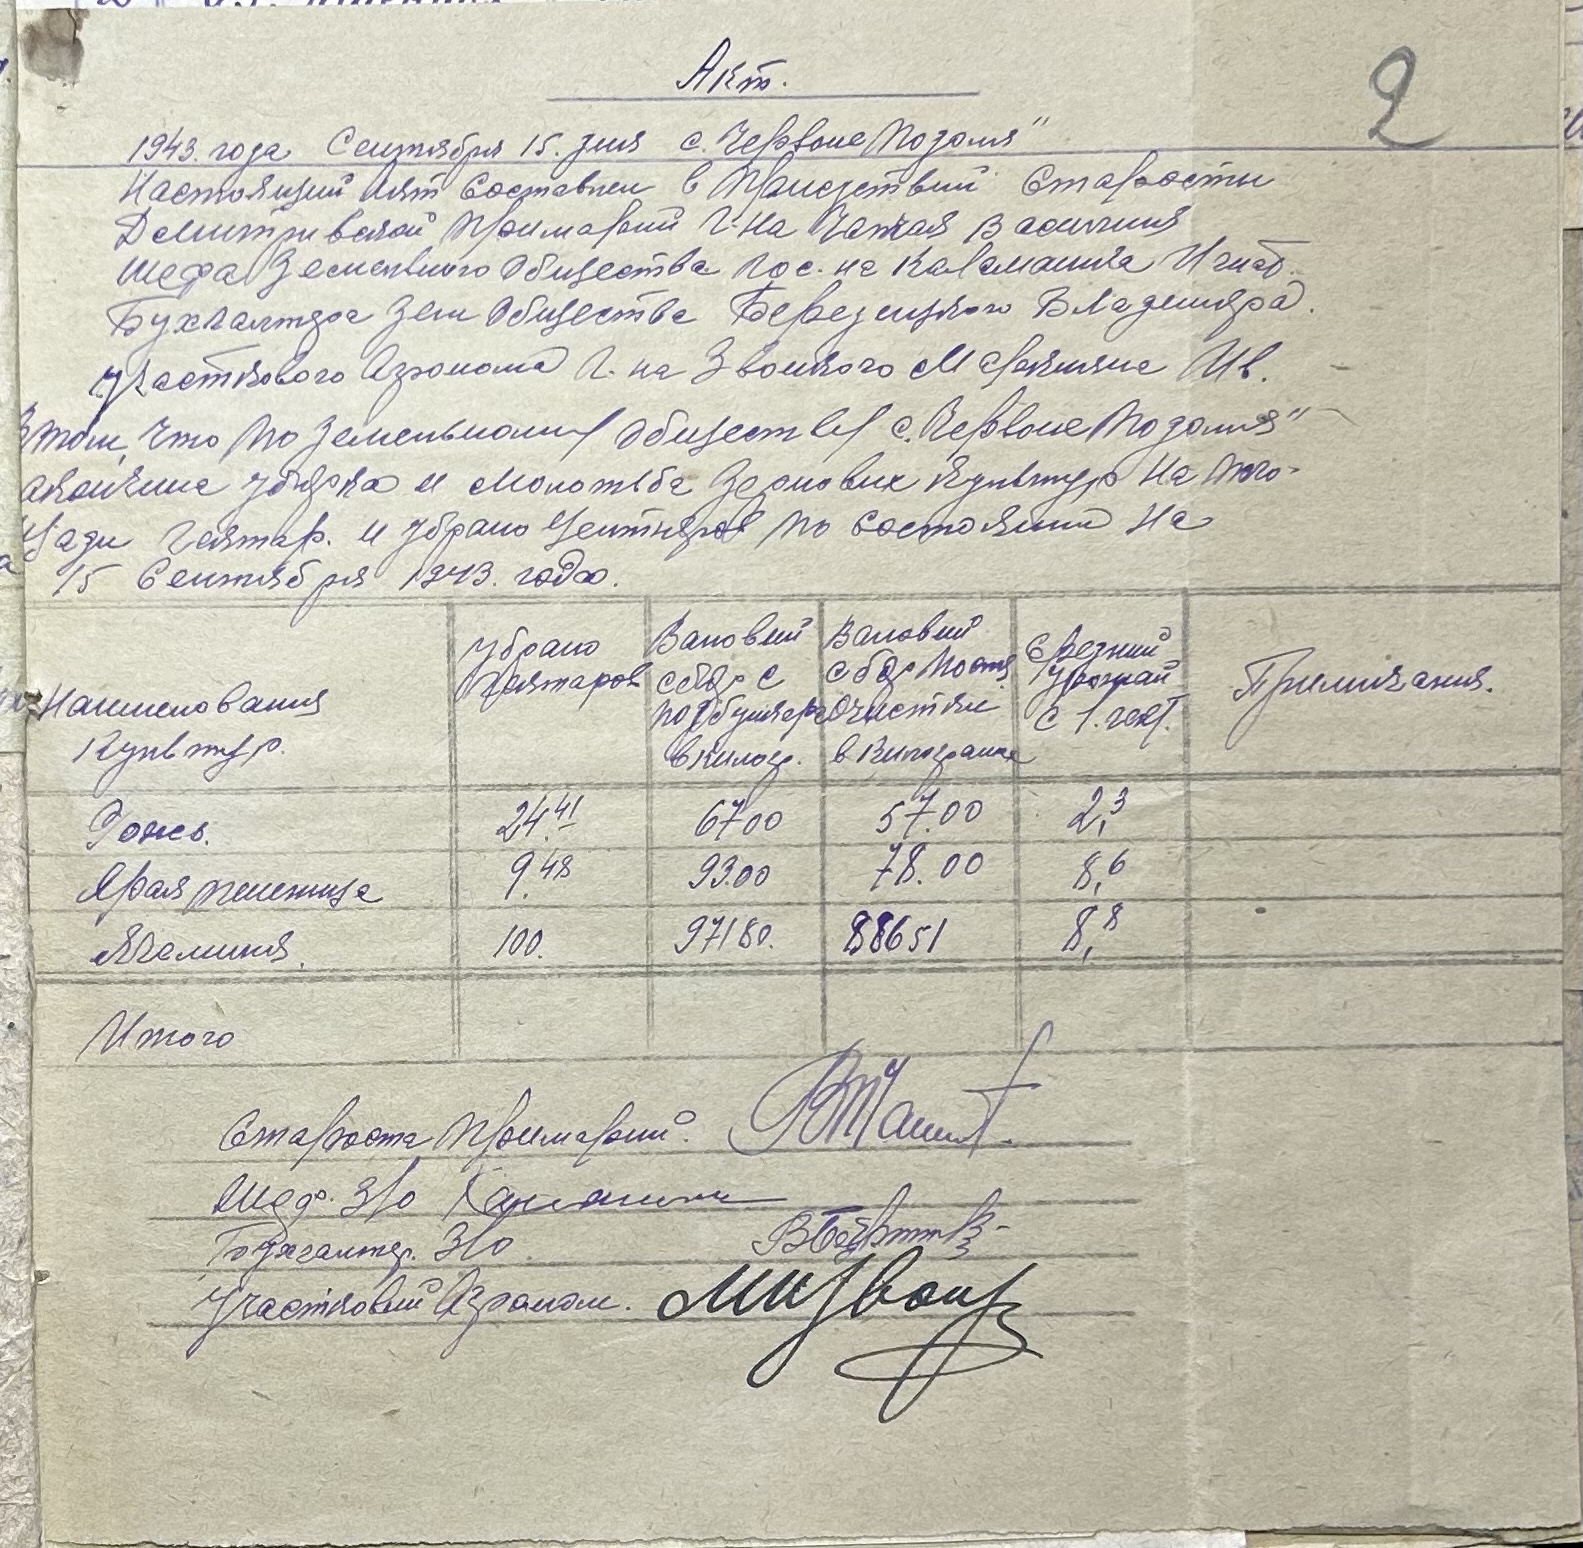 Акт.
2
1943. года Сентября 15. дня с. Червоне Подолля"
Настоящий Акт Составлен в Присудствий Старосты
Дмитривской Примарий Г-на
Шефа Земельного Общества Гос. на Каламаника Игнат.
Бухгалтера Зем Общества Березецкого Владемера.
Участкового Агронома Г. на Звонкого Маркияна Ив.
Втом, Что По Земельному обществу с. Червоне Подолля"
акончина уборка и Молотьба Зернових Культур На Пло-
щади Гектар. и убрано Центнеров По Состоянию На
15 Сентября 1943. года.
Наименования Культур.
Убрано Гектаров
Валовий сбор с под бункера в килогр.
Валовий сбор После Очистки в Килограмах
Средний Урожай с 1. гект.
Примичания.
Рожь. 24.41 6700 57.00 2,3
Ярая пшеница 9.48 93.00 78.00 8,6
Ячминя. 100. 97180. 88651 8,8
Итого
Староста Примарий.
Шеф. З/О
Бухгалтер. З/О.
Участковий Агроном.